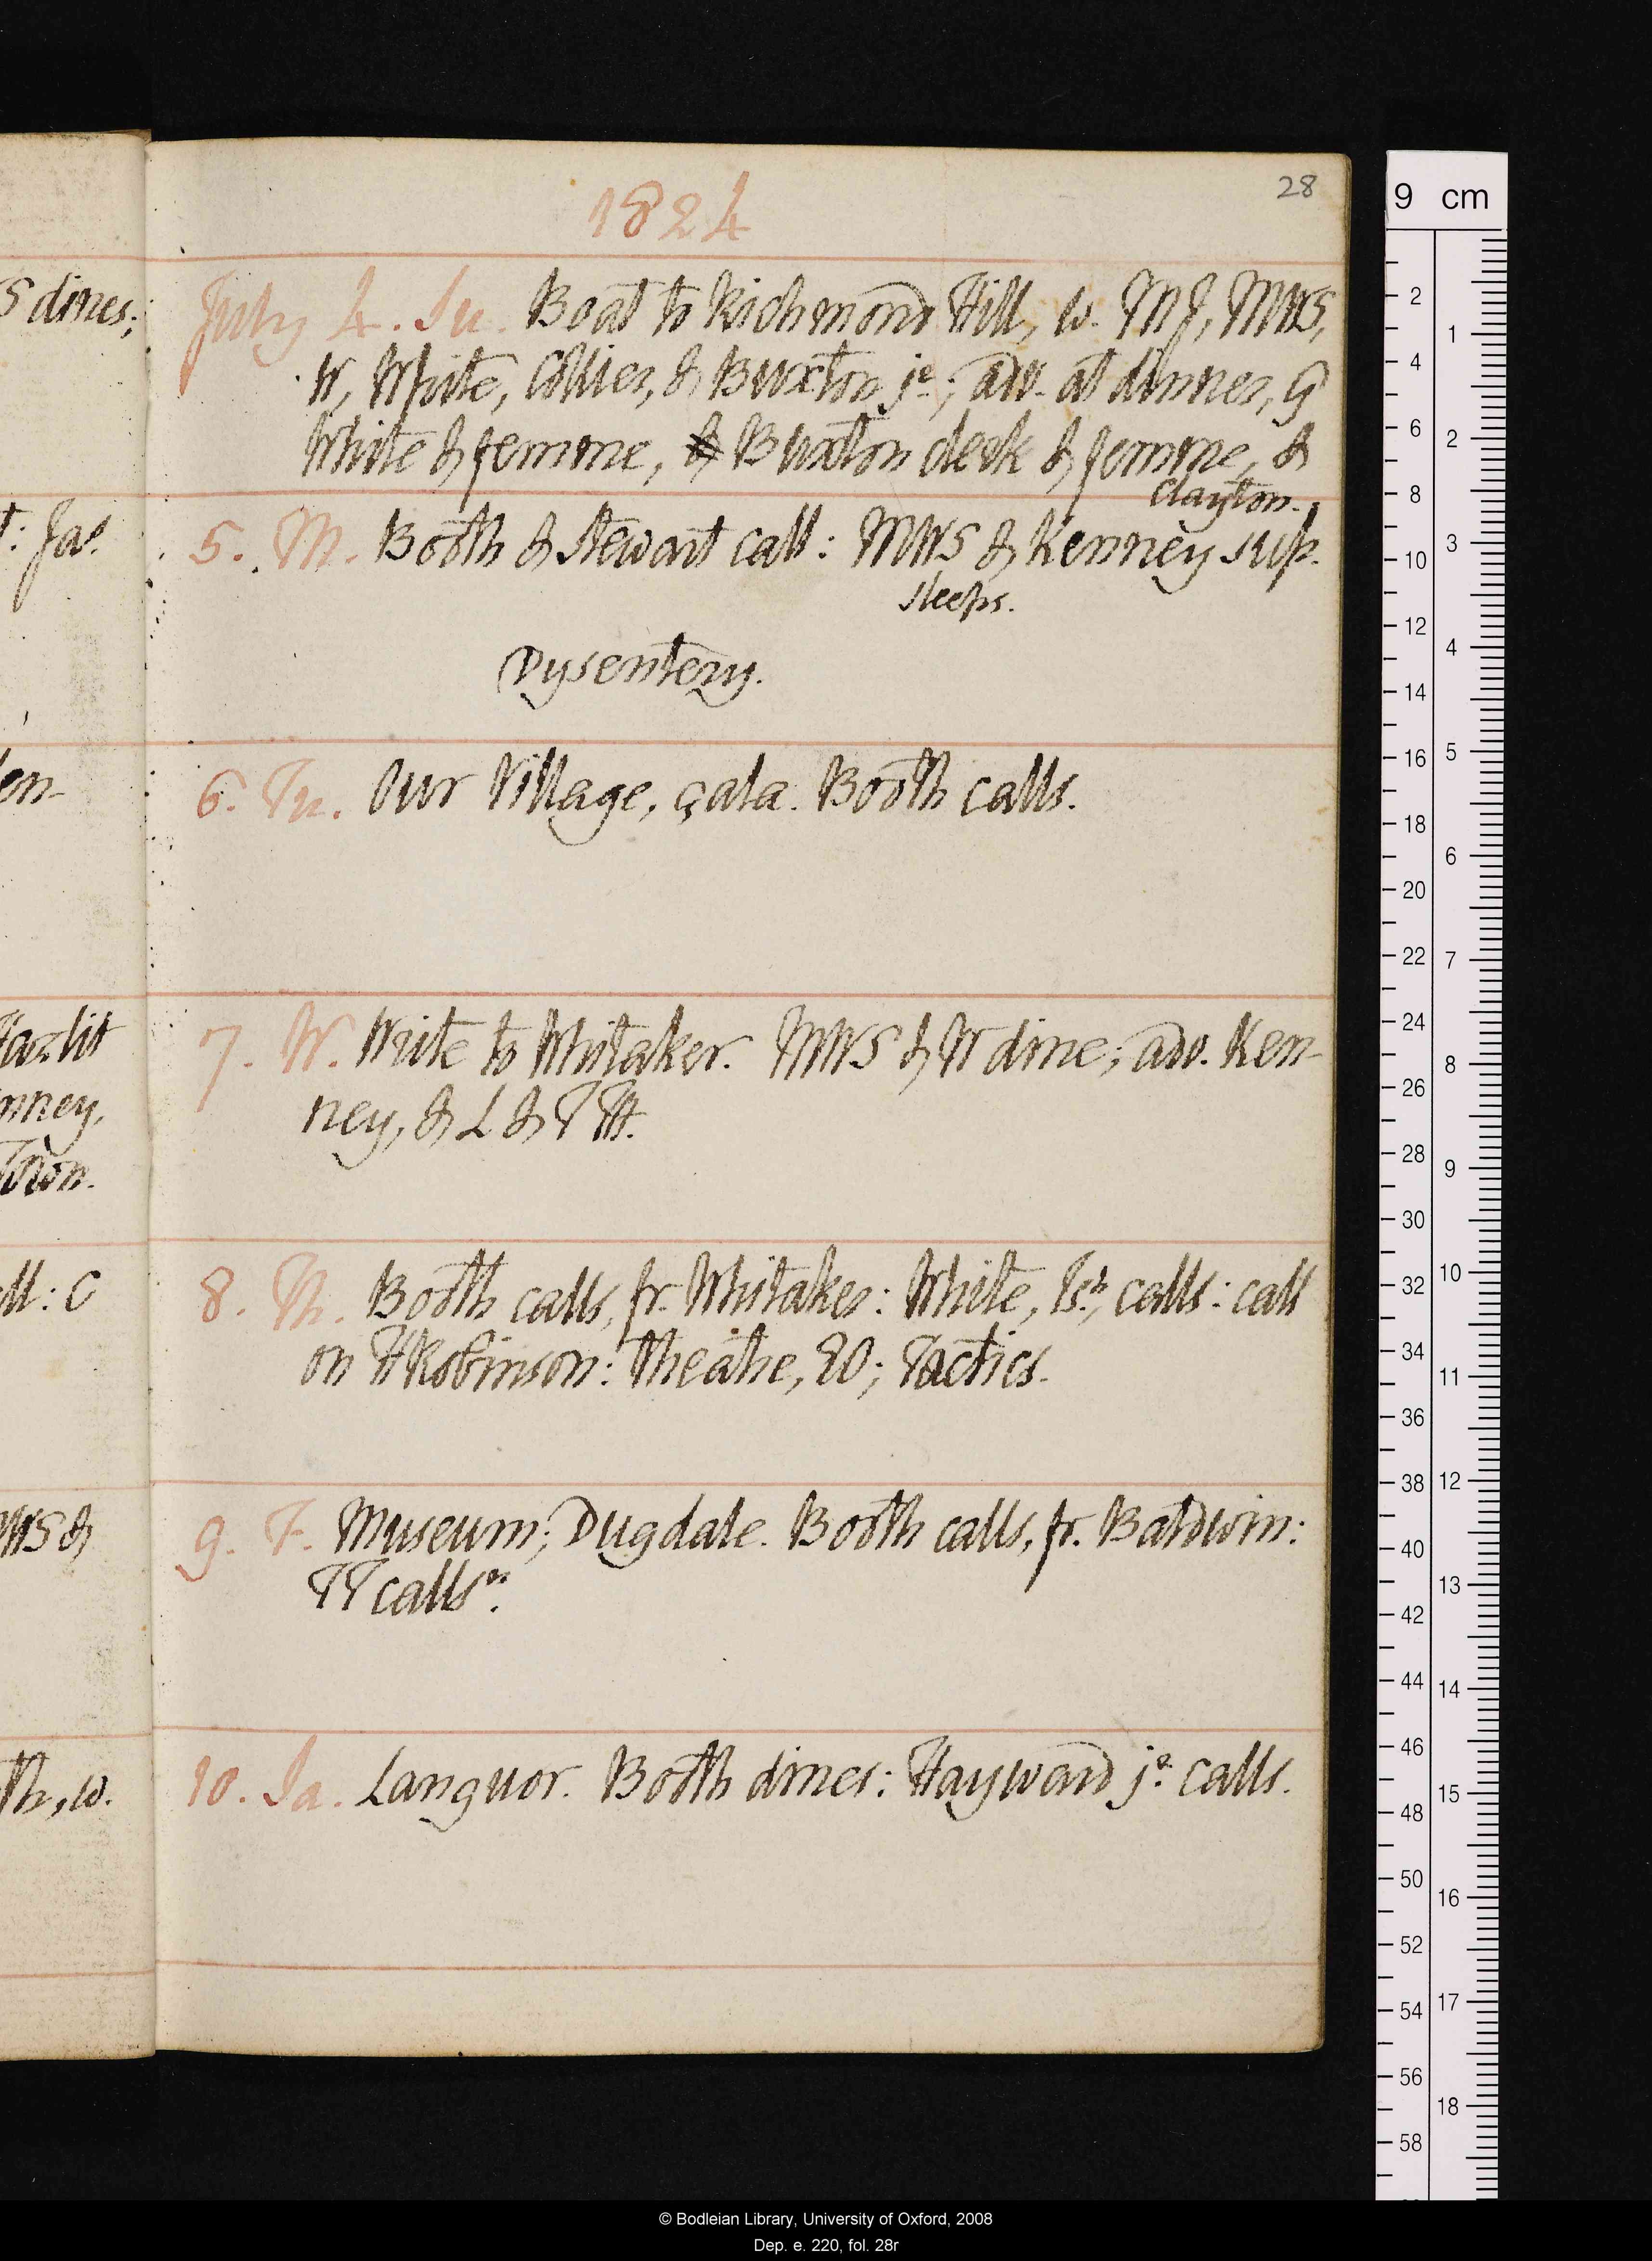 28
1824
July 4. Su. Boat to Richmond Hill, w. MJ, MWS,
W, White, Collier, & Buxton je.; adv. at dinner, G
White & femme, & Buxton clerk & femme, &
Clayton.
5. M. Booth & Stewart call: MWS & Kenney sup.
sleeps.
Dysentery.
6. Tu. Our Village, çala. Booth calls.
7. W. Write to Whitaker. MWS & W dine; adv. Ken-
ney, & L & TH.
8. Th. Booth calls, fr. Whitaker: White, calls: call
on HRobinson: Theatre, EO; Tactics.
9. F. Museum; Dugdale. Booth calls, fr. Baldwin:
TT calls n.
10. Sa. Languor. Booth dines: Hayward je. calls.
S dines;
t: Jas.
en-
Hazlit
nney,
Town.
ll: C
MWS &
Th, w.
9 cm
2
4
6
8
10
12
14
16
18
20
22
24
26
28
30
32
34
36
38
40
42
44
46
48
50
52
54
56
58
1
2
3
4
5
6
7
8
9
10
11
12
13
14
15
16
17
18
© Bodleian Library, University of Oxford, 2008
Dep. e. 220, fol. 28r